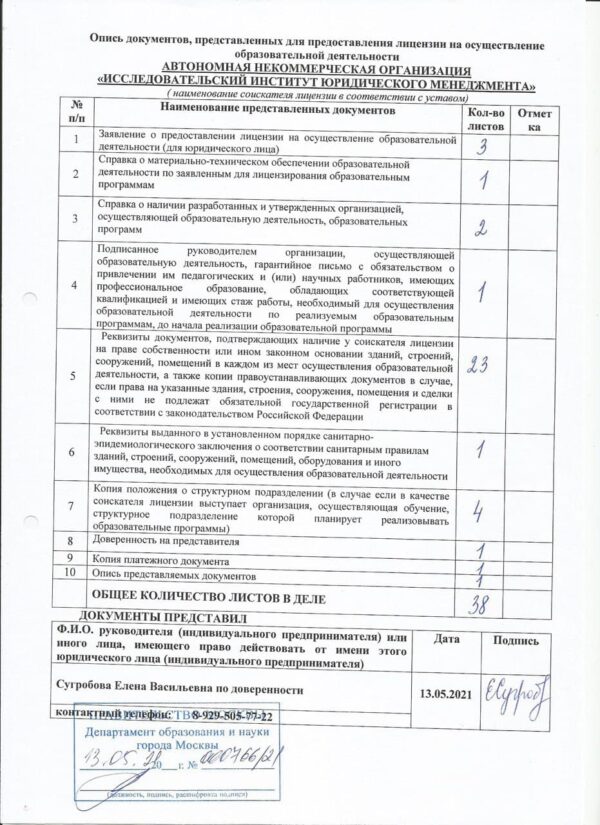 Опись документов, представленных для предоставления лицензии на осуществление
образовательной деятельности
АВТОНОМНАЯ НЕКОММЕРЧЕСКАЯ ОРГАНИЗАЦИЯ
«ИССЛЕДОВАТЕЛЬСКИЙ ИНСТИТУТ ЮРИДИЧЕСКОГО МЕНЕДЖМЕНТА»
( наименование соискателя лицензии в соответствии с уставом)
№ п/п Наименование представленных документов Кол-во листов Отмет ка
1 Заявление о предоставлении лицензии на осуществление образовательной
деятельности (для юридического лица) 3
2 Справка о материально-техническом обеспечении образовательной
деятельности по заявленным для лицензирования образовательным
программам 1
3 Справка о наличии разработанных и утвержденных организацией,
осуществляющей образовательную деятельность, образовательных
программ 2
4 Подписанное руководителем организации, осуществляющей
образовательную деятельность, гарантийное письмо с обязательством о
привлечении им педагогических и (или) научных работников, имеющих
профессиональное образование, обладающих соответствующей
квалификацией и имеющих стаж работы, необходимый для осуществления
образовательной деятельности по реализуемым образовательным
программам, до начала реализации образовательной программы 1
5 Реквизиты документов, подтверждающих наличие у соискателя лицензии
на праве собственности или ином законном основании зданий, строений,
сооружений, помещений в каждом из мест осуществления образовательной
деятельности, а также копии правоустанавливающих документов в случае,
если права на указанные здания, строения, сооружения, помещения и сделки
с ними не подлежат обязательной государственной регистрации в
соответствии с законодательством Российской Федерации 23
6 Реквизиты выданного в установленном порядке санитарно-
эпидемиологического заключения о соответствии санитарным правилам
зданий, строений, сооружений, помещений, оборудования и иного
имущества, необходимых для осуществления образовательной деятельности 1
7 Копия положения о структурном подразделении (в случае если в качестве
соискателя лицензии выступает организация, осуществляющая обучение,
структурное подразделение которой планирует реализовывать
образовательные программы) 4
8 Доверенность на представителя 1
9 Копия платежного документа 1
10 Опись представляемых документов 1
ОБЩЕЕ КОЛИЧЕСТВО ЛИСТОВ В ДЕЛЕ 38
ДОКУМЕНТЫ ПРЕДСТАВИЛ
Ф.И.О. руководителя (индивидуального предпринимателя) или Дата Подпись
иного лица, имеющего право действовать от имени этого
юридического лица (индивидуального предпринимателя)
Сугробова Елена Васильевна по доверенности 13.05.2021
контактный телефон: 8-929-505-77-22
Департамент образования и науки
города Москвы
13.05.21 20 г. № 000766/21
(должность, подпись, расшифровка подписи)